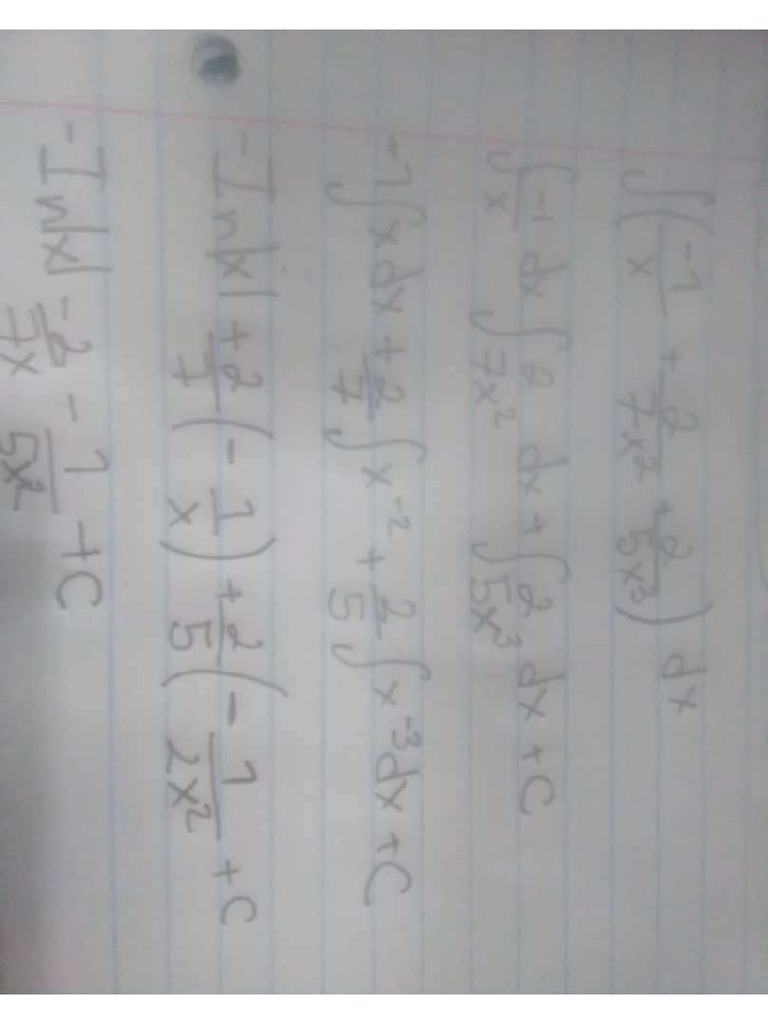 ∫(-1/x + 2/7x² + 2/5x³) dx
∫-1/x dx ∫2/7x² dx + ∫2/5x³ dx + C
-1∫x dx + 2/7∫x⁻² + 2/5∫x⁻³dx + C
-In|x| + 2/7(-1/x) + 2/5(-1/2x² + C
-In|x| -2/7x - 1/5x² + C